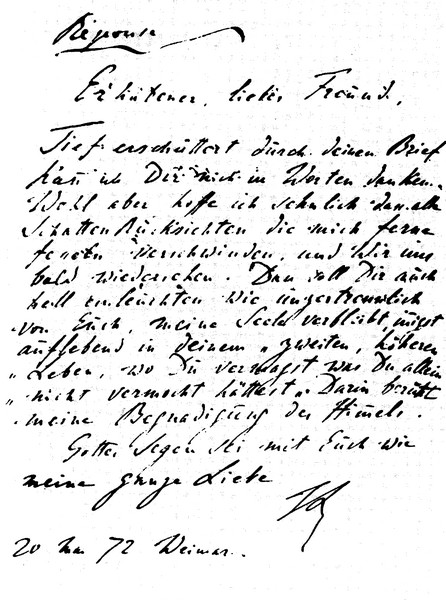 Réponse
Erhabener, lieber Freund,
Tief erschüttert durch deinen Brief
kan̄ ich Dir nicht in Worten danken.
Wohl aber hoffe ich sehnlich dass alle
Schatten Rücksichten die mich ferne
fesseln verschwinden, und Wir uns
bald wiedersehen. Dan̄ soll Dir auch
hell einleuchten wie unzertrennlich
von Euch, meine Seele verbleibt, in̄igst
auflebend in deinem „zweiten, höheren
„Leben, wo Du vermagst was Du allein
„nicht vermocht hättest„. Darin beruht
meine Begnadigung des Him̄els.
Gottes Segen sei mit Euch wie
meine ganze Liebe
20 Mai 72 Weimar.